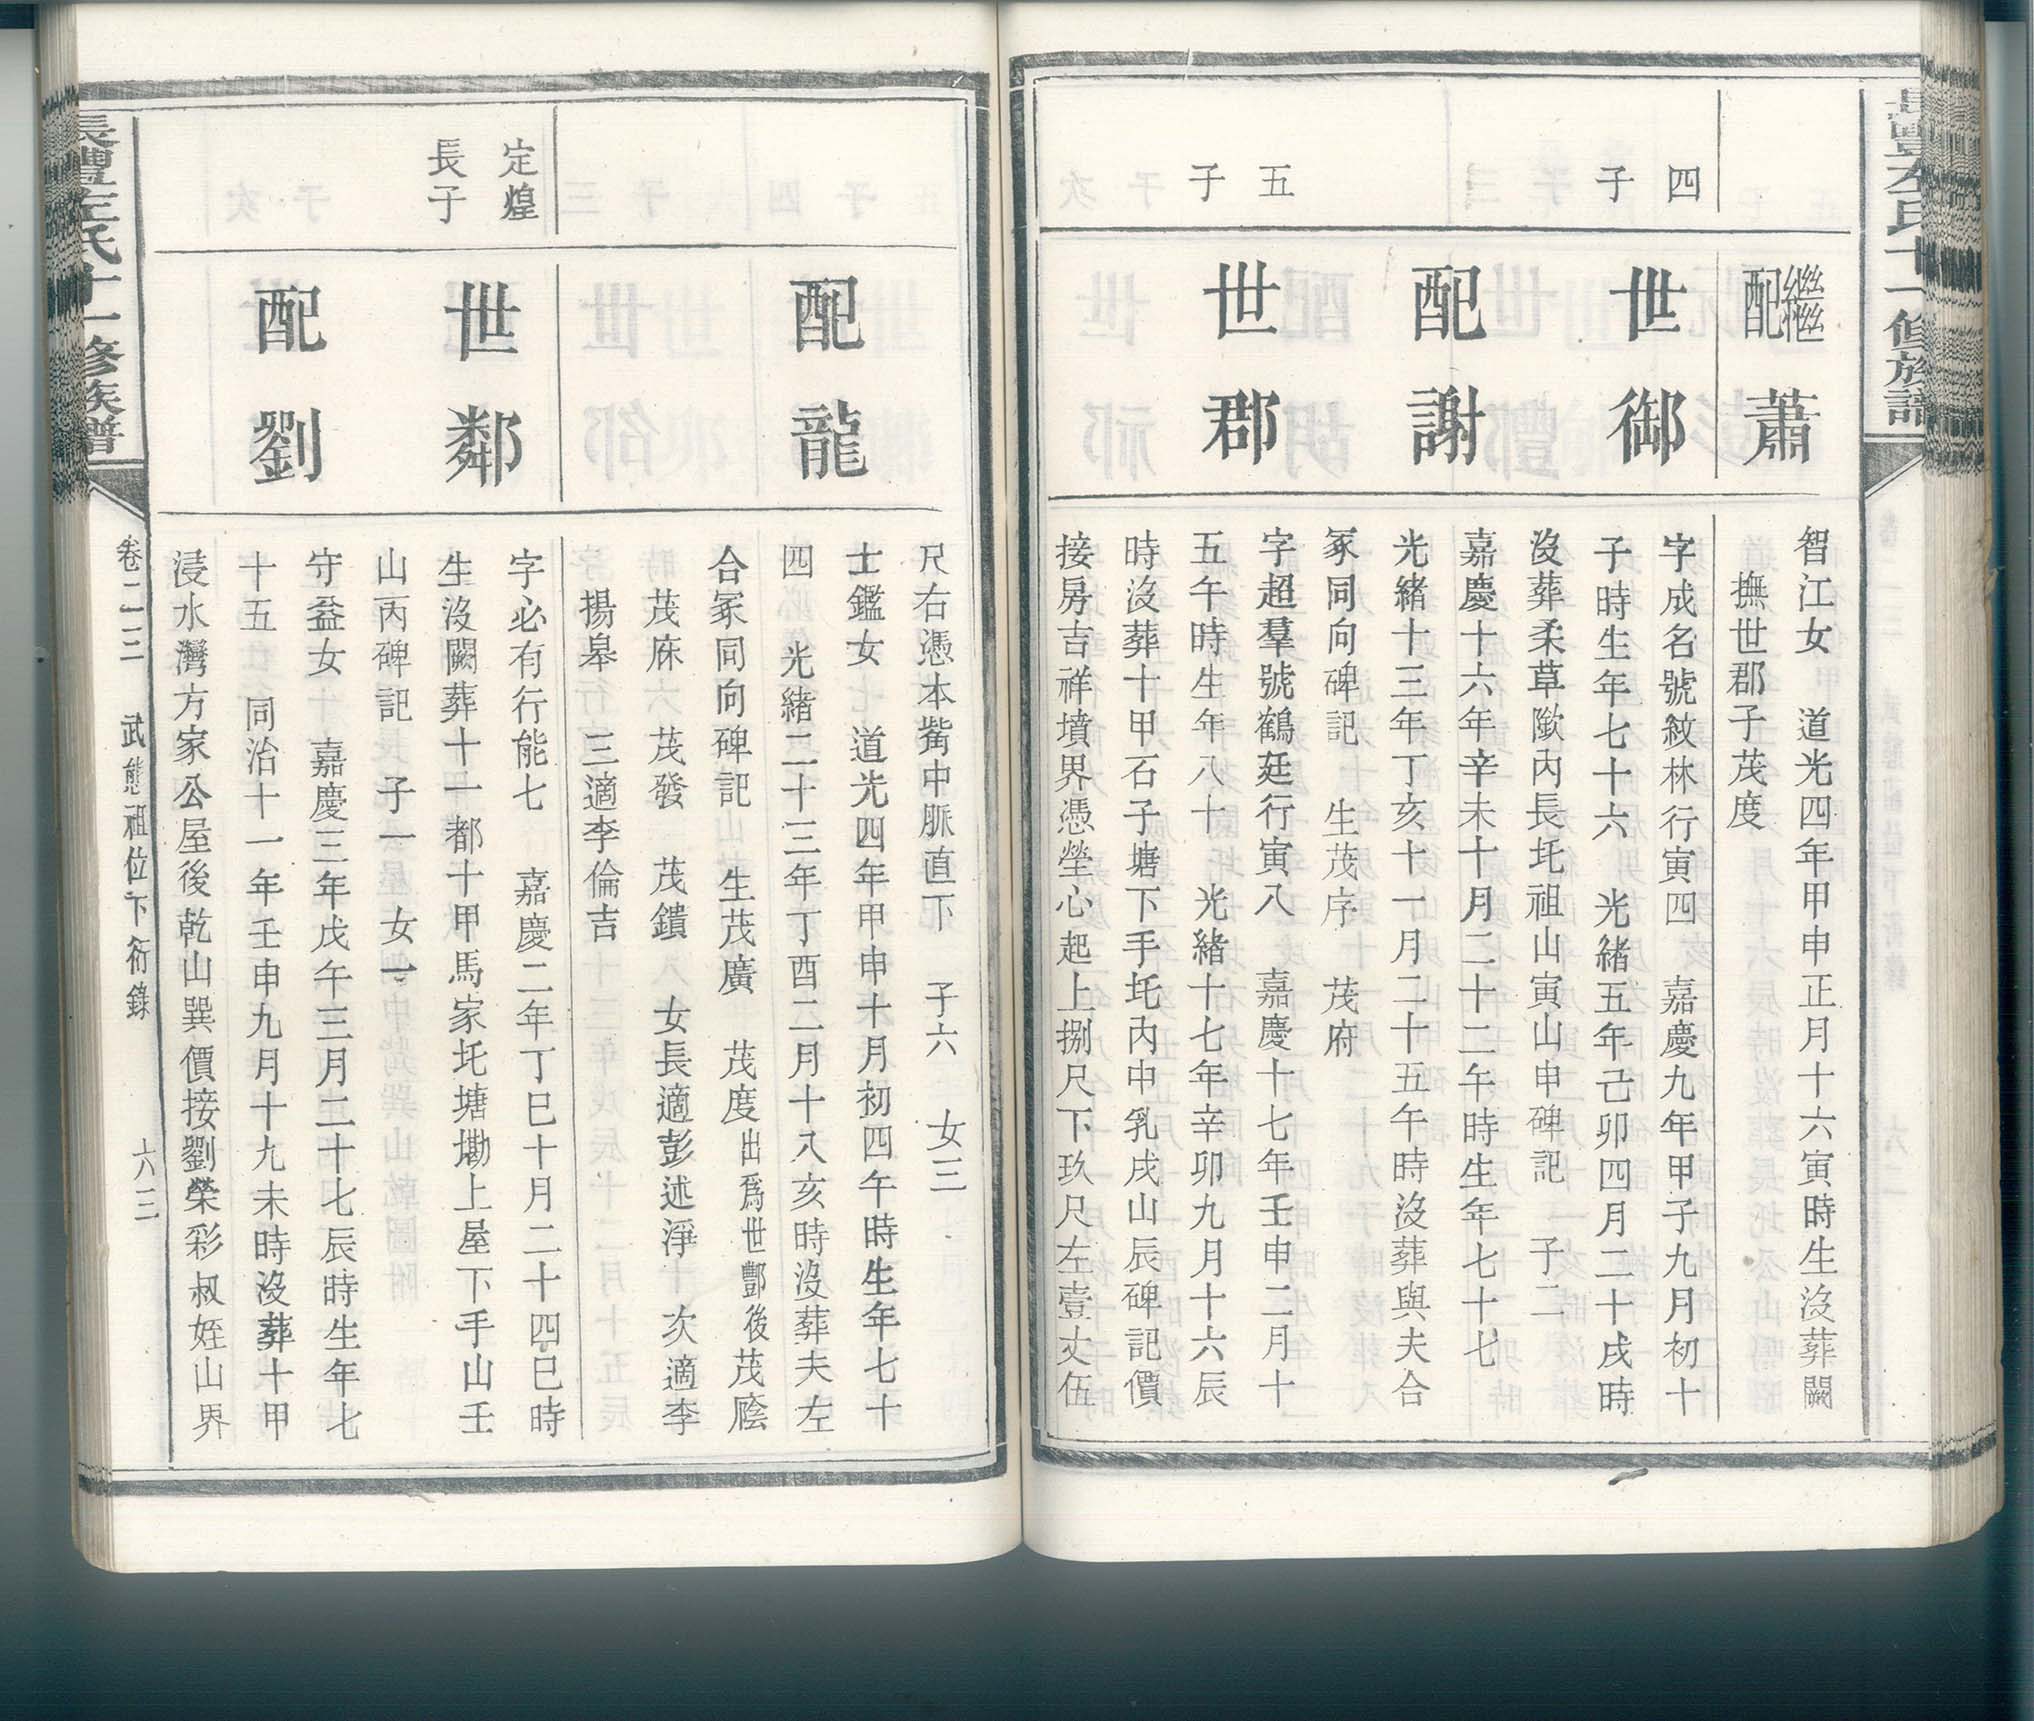 長豐左氏十一修族譜
繼配 蕭
智江女 道光四年甲申正月十六寅時生沒葬闕
撫世郡子茂度
四子
世御
字成名號紋林行寅四 嘉慶九年甲子九月初十
子時生年七十六 光緒五年己卯四月二十戌時
沒葬柔草歘內長圫祖山寅山申碑記 子二
配謝
嘉慶十六年辛未十月二十二午時生年七十七
光緒十三年丁亥十一月二十五午時沒葬與夫合
冢同向碑記 生茂序 茂府
五子
世郡
字超羣號鶴廷行寅八 嘉慶十七年壬申二月十
五午時生年八十 光緒十七年辛卯九月十六辰
時沒葬十甲石子塘下手圫內中乳戌山辰碑記價
接房吉祥墳界憑塋心起上捌尺下玖尺左壹丈伍
尺右憑本觜中脈直下 子六 女三
配龍
士鑑女 道光四年甲申十月初四午時生年七十
四 光緒二十三年丁酉二月十八亥時沒葬夫左
合冢同向碑記 生茂廣 茂度出爲世酆後茂廕
茂庥 茂發 茂鐀 女長適彭述淨 次適李
揚皋 三適李倫吉
定煌長子
世鄰
字必有行能七 嘉慶二年丁巳十月二十四巳時
生沒闕葬十一都十甲馬家圫塘墈上屋下手山壬
山丙碑記 子一 女一
配劉
守益女 嘉慶三年戊午三月二十七辰時生年七
十五 同治十一年壬申九月十九未時沒葬十甲
浸水灣方家公屋後乾山巽價接劉榮彩叔姪山界
長豐左氏十一修族譜
卷二三 武態祖位下衍錄 六三